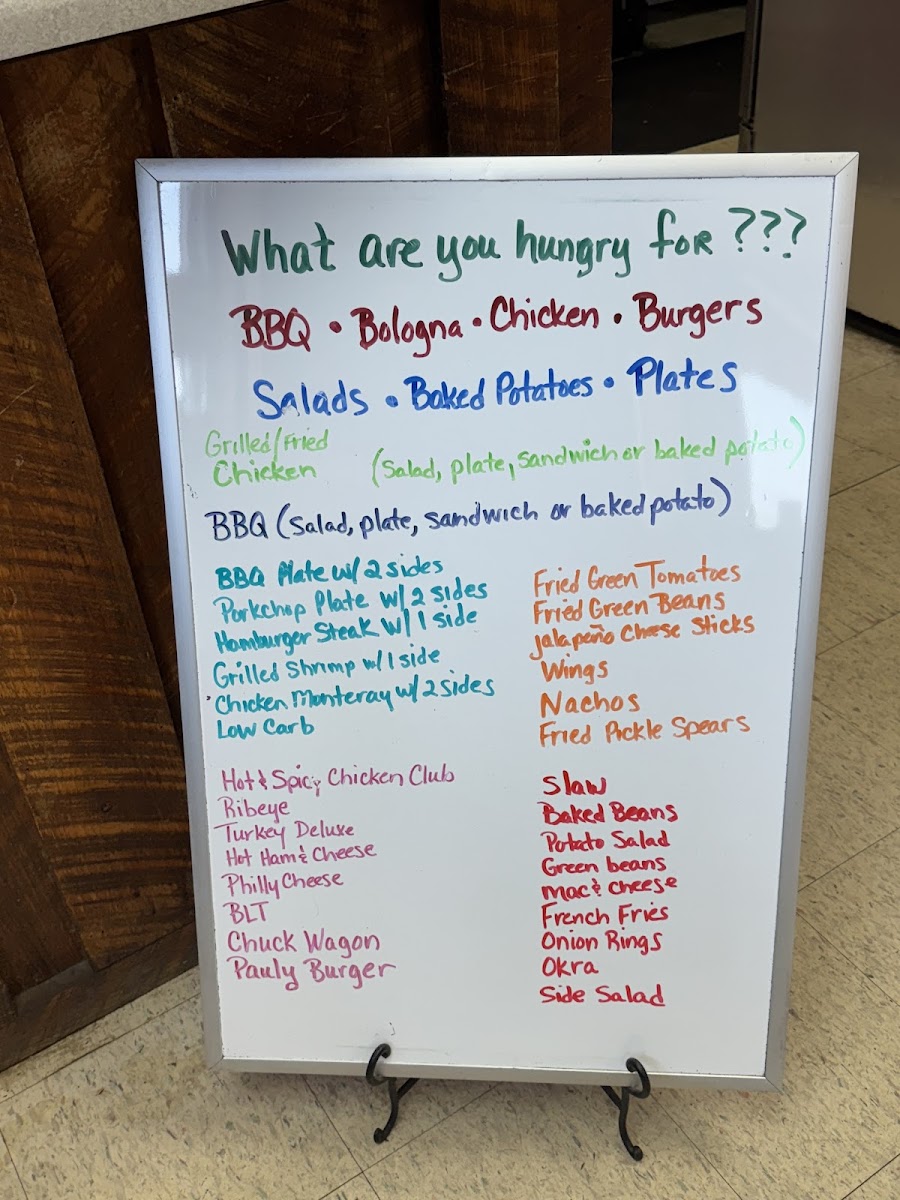 What are you hungry for ???
BBQ • Bologna • Chicken • Burgers
Salads • Baked Potatoes • Plates
Grilled/Fried
Chicken (Salad, plate, sandwich or baked potato)
BBQ (Salad, plate, sandwich or baked potato)
BBQ Plate w/ 2 sides
Porkchop Plate w/ 2 sides
Hamburger Steak w/ 1 side
Grilled Shrimp w/ 1 side
Chicken Monteray w/ 2 sides
Low Carb
Fried Green Tomatoes
Fried Green Beans
jalapeño Cheese Sticks
Wings
Nachos
Fried Pickle Spears
Hot & Spicy Chicken Club
Ribeye
Turkey Deluxe
Hot Ham & Cheese
Philly Cheese
BLT
Chuck Wagon
Pauly Burger
Slaw
Baked Beans
Potato Salad
Green beans
mac & cheese
French Fries
Onion Rings
Okra
Side Salad